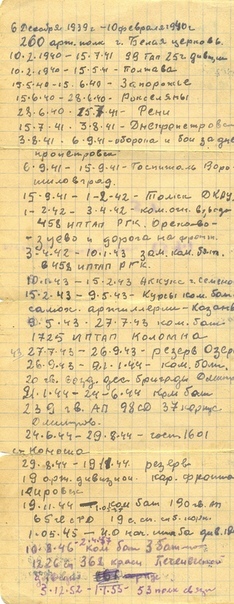 6 Декабря 1939 г - 10 февраля 1940 г.
260 арт. полк г. Белая церковь.
10.2.1940 - 15.7.41 99 Гап 25г дивизии
10.2.1940 - 15.5.41 - Полтава
15.5.40 - 15.6.40 - Запорожье
15.6.40 - 28.6.40
28.6.40 15.7.41 - Рени
15.7.41 - 3.8.41 - Днепропетровск
3.8.41 6.9.41 - оборона и бои за дне
пропетровск
6.9.41 - 15.9.41 - Госпиталь Воро
шиловград.
15.9.41 - 1-2-42 - Томск ДКРУ
1-2-42 - 3-4-42 - ком.огн. взвода
458 ИПТАП РГК. Орехово-
зуево и дорога на фронт.
3-4-42 - 10.1.43 зам. ком. бат.
в 458 ИПТАП РГК.
10.1.43 - 15.2.43
15.2.43 - 9.5.43 - Курсы ком. бат
самох. артиллерии - Казань
9.5.43 27.7.43 ком. бат
1725 ИПТАП Коломна
27.7.43 - 26.9.43 - резерв
26.9.43 - 21.1.44 - ком. бат.
20 дес. бригады
21.1.44 - 24-6.44 ком бат
239 гв. АП 98СД 37 корпус
24.6.44 - 29.8.44 - госп. 1601
ст Коноша
29.8.44 - 44 резерв
19 арт. дивизион. кар. фронта
19.11.44 ком бат 190 гв. ап
19 с.
1.05.45 - н.о нач. штаба див.
10.8.46 ком бат 3 бат
3.12.52 - 1.1.53 - 53 полк связи